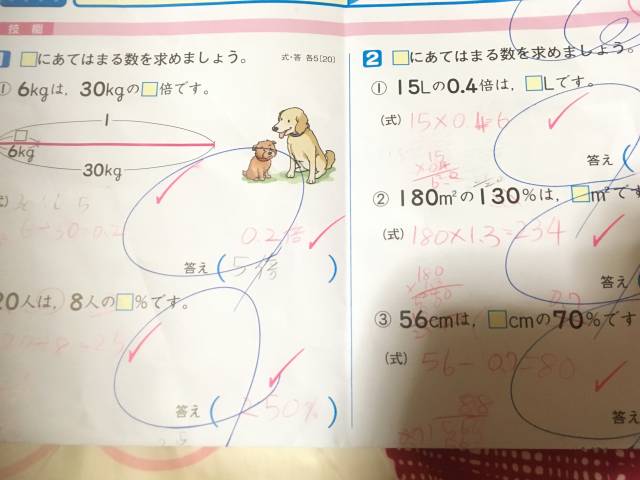 技能
1 □にあてはまる数を求めましょう。 式・答 各5[20]
① 6kgは，30kgの□倍です。
1
□
6kg
30kg
6÷30=0.2
0.2倍
答え ( 5倍 )
20人は，8人の□%です。
答え ( 250% )
2 □にあてはまる数を求めましょう。
① 15Lの0.4倍は，□Lです。
(式) 15×0.4=6
15
答え (
② 180m²の130%は，□m²です
(式) 180×1.3=234
180
答え
③ 56cmは，□cmの70%です
(式) 56÷0.7=80
答え